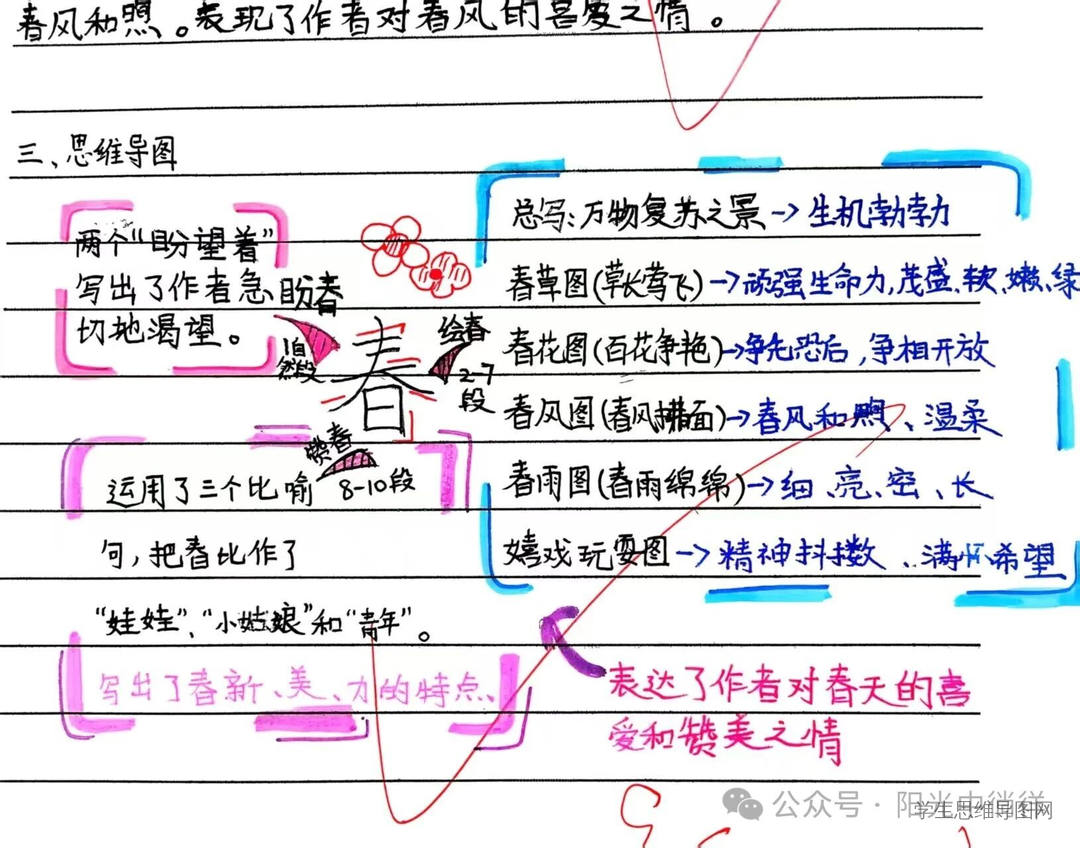 春风和煦。表现了作者对春风的喜爱之情。
三、思维导图
两个“盼望着”
写出了作者急
切地渴望。
盼春
1自
然段
春
绘春
2-7
段
总写:万物复苏之景→生机勃勃
春草图(草长莺飞)→顽强生命力,茂盛、软、嫩、绿
春花图(百花争艳)→争先恐后,争相开放
春风图(春风拂面)→春风和煦、温柔
春雨图(春雨绵绵)→细、亮、密、长
嬉戏玩耍图→精神抖擞、满怀希望
赞春
8-10段
运用了三个比喻
句,把春比作了
“娃娃”、“小姑娘”和“青年”。
写出了春新、美、力的特点、
表达了作者对春天的喜
爱和赞美之情
公众号·阳光
学生思维导图网